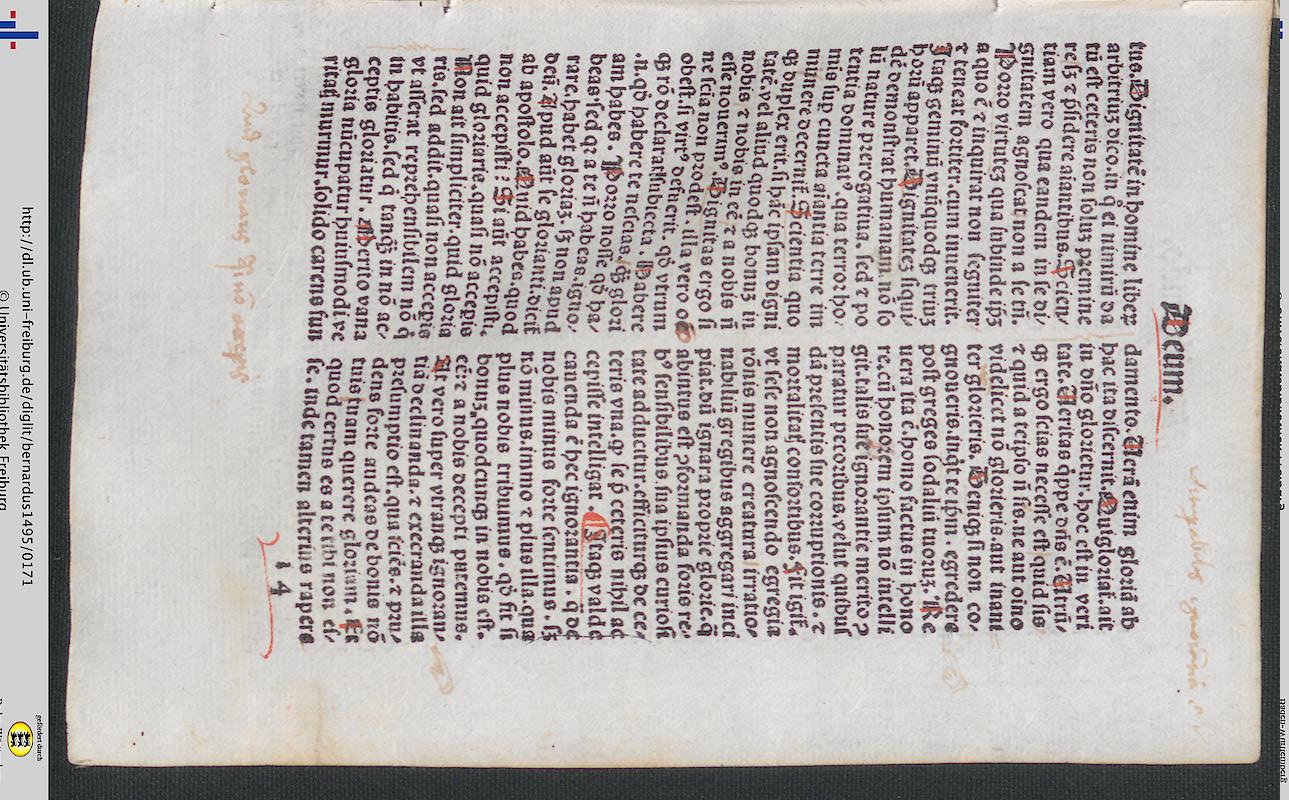 Deum.
tus. Dignitatē in homine liberū
arbitriuȝ dico. in q̄ ei nimirū da
tū est ceteris non soluȝ p̄emine
re sȝ ⁊ p̄sidere aīantibus. Scien⸗
tiam vero qua eandem in se di⸗
gnitatem agnoscat non a se tn̄.
Porro virtuteȝ qua subinde ip̄ȝ
a quo ē ⁊ inquirat non segniter
⁊ teneat fortiter. cum inuenerit.
Itaqȝ geminū vnūquodqȝ triuȝ
horū apparet. Dignitateȝ siqui⸗
dē demonstrat humanam. nō so
lū nature prerogatiua. sed ⁊ po
tentia dominatꝰ. qua terror ho⸗
mis sup cuncta aīantia terre im
minere decernit̄. Scientia quo
qȝ duplex erit. si hāc ipsam digni
tatē. vel aliud quodqȝ bonuȝ in
nobis ⁊ nobis inēē ⁊ a nobis n̄
esse nouerimꝰ. Dignitas ergo si
ne scīa non prodest. illa vero
obest. si virtꝰ defuerit. qd̓ vtrum
qȝ rō declarat subiecta. Habere
.n. qd̓ habere te nescias. qȝ glori
am habes. Porro nosse qd̓ ha⸗
beas sed qȝ a te n̄ habeas. igno⸗
rare. habet gloriaȝ. sȝ non apud
deū. Apud aūt se glorianti. dicit̄
ab apostolo. Quid habes. quod
non accepisti? Si aūt accepisti.
quid gloriaris. quasi nō acceperis
Non ait simpliciter. quid gloria
ris. sed addit. quasi non acceperis
vt asserat reprehensibilem nō q̄
in habitis. sed q̄ tanqȝ in nō ac⸗
ceptis gloriatur. Merito vana
gloria nūcupatur huiusmodi. ve
ritatꝭ nimirum solido carens fun
damento. Uerā etiim gloriā ab
hac ita discernit. Qui gloriat̄. ait
in dn̄o glorietur. hoc est in veri
tate. Ueritas q̄ppe dn̄s ē. Utrū⸗
qȝ ergo scias necesse est quid sis
⁊ quid a teipso n̄ sis. ne aut oīno
videlicet nō glorieris. aut inane
ter glorieris. Deniqȝ si non co⸗
gnoueris. inqͥt te ip̄m. egredere
post greges sodaliū tuoruȝ. Re
uera ita ē. homo factus in hono
re. cū honorem ipsum nō intelli
git. talis sue ignorantie merito cō
paratur pecoribus. velut quibus
dā presentis sue corruptionis. ⁊
mortalitatꝭ consortibus. Fit igit̄.
vt sese non agnoscendo egregia
rōnis munere creatura irratio⸗
nabiliū gregibus aggregari inci
piat. dū ignara proprie glorie. q̄
ab intus est. ꝯformanda foris re⸗
bꝰ sensibilibus sua ipsius curiosi
tate adducitur. efficiturqȝ de ce⸗
teris vna. qȝ se p̄ ceteris nihil ac
cepisse intelligat. Itaqȝ valde
cauenda ē hec ignorantia. q̄ de
nobis minus forte sentimus. sȝ
nō minus. immo ⁊ plus illa. qua
plus nobis tribuimus. qd̓ fit si
bonuȝ quodcunqȝ in nobis est.
eē ⁊ a nobis decepti putemus.
At vero super vtranqȝ ignoran⸗
tiā declinanda. ⁊ execranda illa
presumptio est. qua sciēs. ⁊ pru⸗
dens forte audeas de bonis nō
tuis tuam querere gloriam. ⁊
quod certus es a te tibi non es⸗
se. inde tamen alterius rapere
14
http://dl.ub.uni-freiburg.de/diglit/bernardus1495/0171
© Universitätsbibliothek Freiburg
gefördert durch